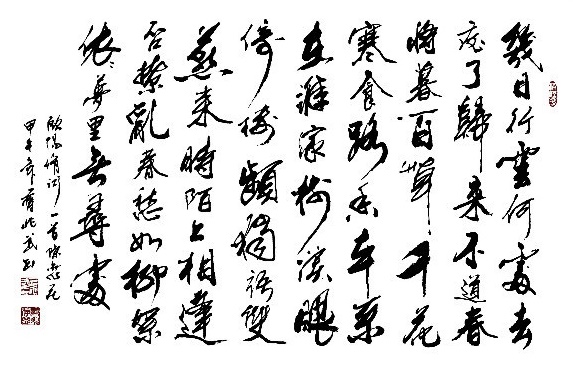 幾日行雲何處去
忘了歸来不道春
将暮百草千花
寒食路香車系
在誰家樹淚眼
倚樓頻獨語雙
燕来時陌上相逢
否撩亂春愁如柳絮
依々夢里無尋處
歐陽修词一首蝶恋花
甲午年 书